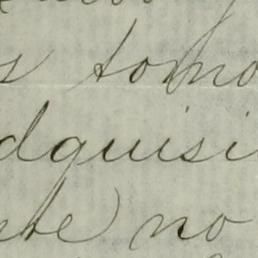 s tomo
dquisi
te) no